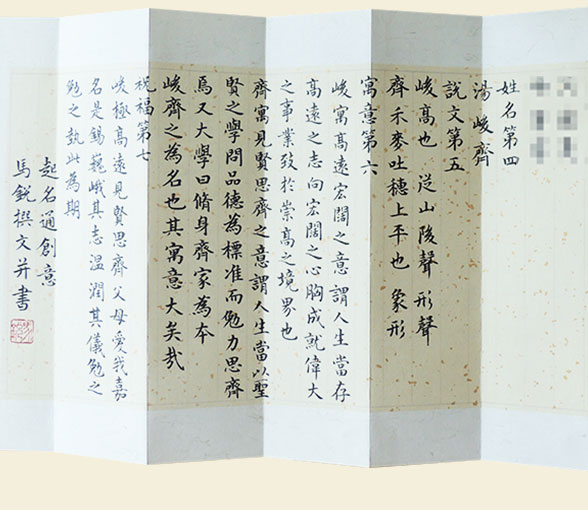 姓名第四
湯峻齊
說文第五
峻高也 從山陵聲 形聲
齊禾麥吐穗上平也 象形
寓意第六
峻寓高遠宏闊之意謂人生當存
高遠之志向宏闊之心胸成就偉大
之事業致於崇高之境界也
齊寓見賢思齊之意謂人生當以聖
賢之學問品德為標准而勉力思齊
焉又大學曰脩身齊家為本
峻齊之為名也其寓意大矣哉
祝福第七
峻極高遠見賢思齊父母愛我嘉
名是錫巍峨其志溫潤其儀勉之
勉之執此為期
起名通創意
馬銳撰文并書